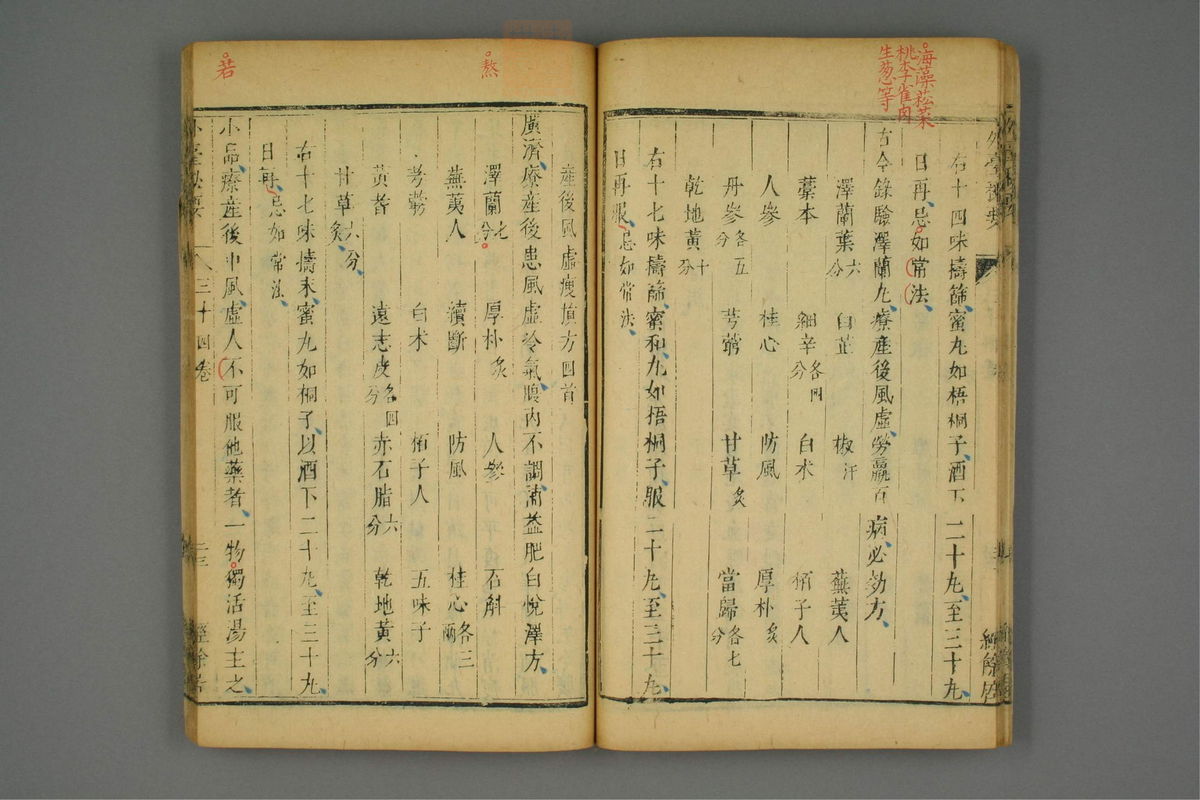 海藻菘菜
桃李雀肉
生葱等
右十四味擣篩蜜丸如梧桐子酒下二十丸至三十丸
日再忌如常法
古今錄驗澤蘭丸療產後風虛勞羸百病必効方
澤蘭葉六分 白芷 椒汗 蕪荑人
藁本 細辛各四分 白朮 栢子人
人參 桂心 防風 厚朴炙
丹參各五分 芎藭 甘草炙 當歸各七分
乾地黃十分
右十七味擣篩蜜和丸如梧桐子服二十丸至三十丸
日再服忌如常法
熬
若
產後風虛瘦損方四首
廣濟療產後患風虛冷氣腹內不調補益肥白悅澤方
澤蘭七分 厚朴炙 人參 石斛
蕪荑人 續斷 防風 桂心各三兩
芎藭 白朮 栢子人 五味子
黃耆 遠志皮各四分 赤石脂六分 乾地黃六分
甘草六分炙
右十七味擣末蜜丸如桐子以酒下二十丸至三十丸
日再忌如常法
小品療產後中風虛人不可服他藥者一物獨活湯主之
三十四卷
二三
經餘居